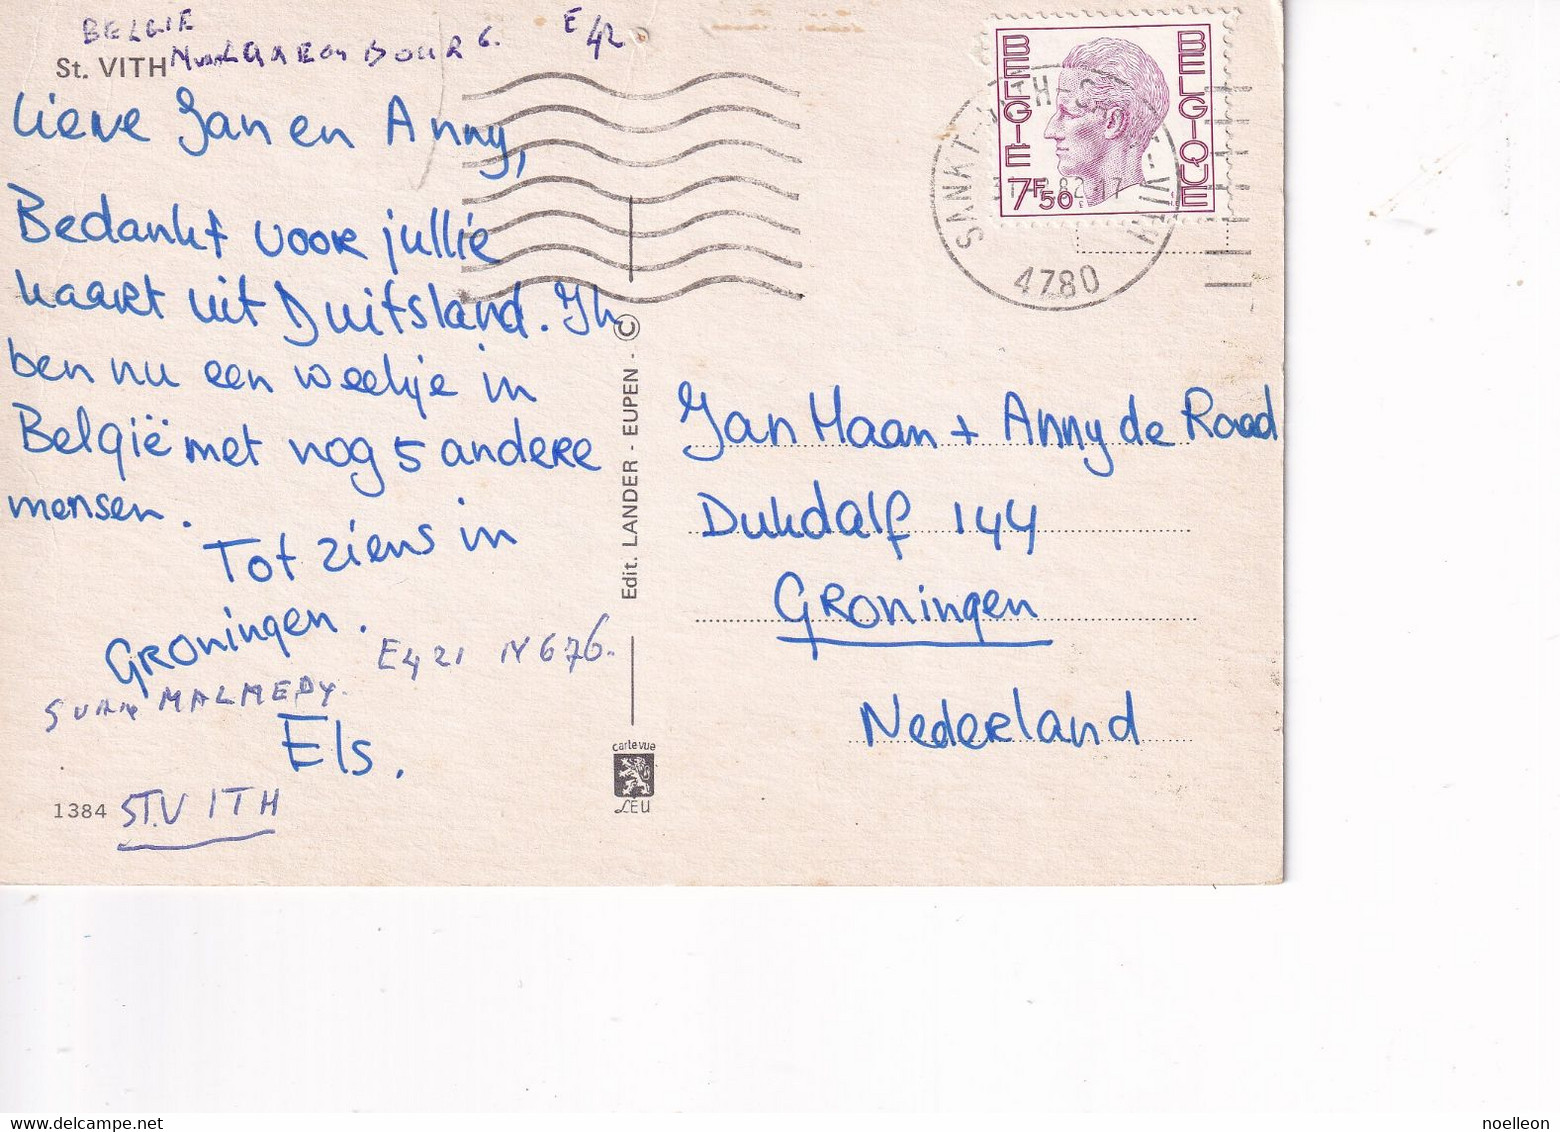 BELGIE
St. VITH
E 42
Lieve Jan en Anny,
Bedankt voor jullie
kaart uit Duitsland. Ik
ben nu een weekje in
België met nog 5 andere
mensen.
Tot ziens in
Groningen.
E421 N676.
MALMEDY.
Els.
1384
ST.VITH
Edit. LANDER - EUPEN - ©
carte vue
LEU
BELGIE
BELGIQUE
7F50
SANKT-VITH-SAINT-VITH
82-17
4780
Jan Haan + Anny de Raad
Dukdalf 144
Groningen
Nederland
noelleon